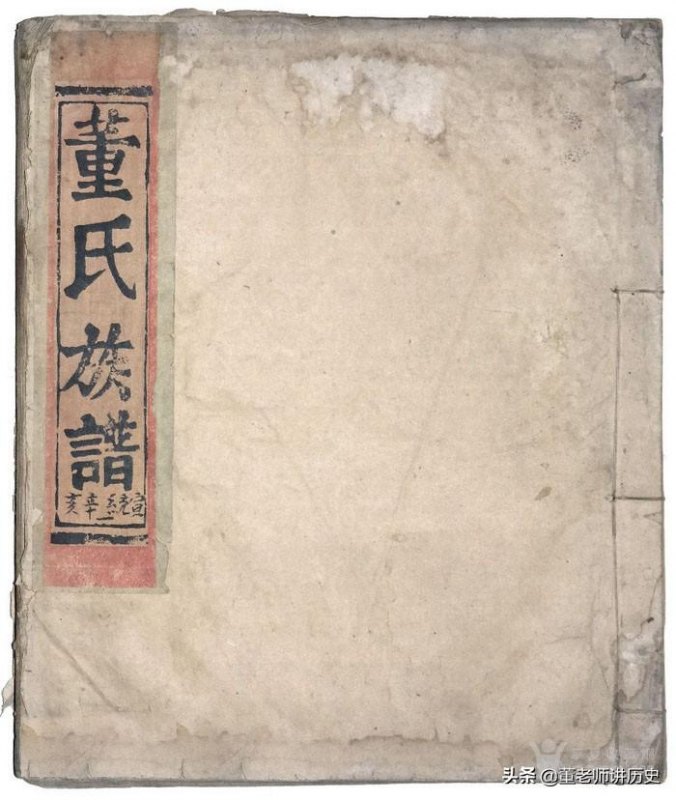 董氏族譜
宣統辛亥
头条 @董老师讲历史